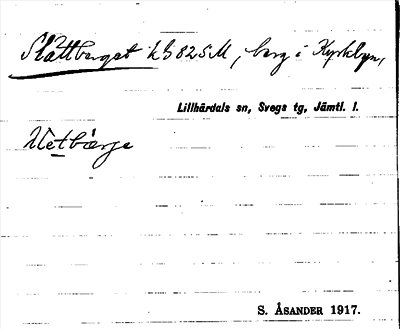 Slättberget kB 825M, berg i Kyrkbyn,
Lillhärdals sn, Svegs tg, Jämtl. l.
S. ÅSANDER 1917.